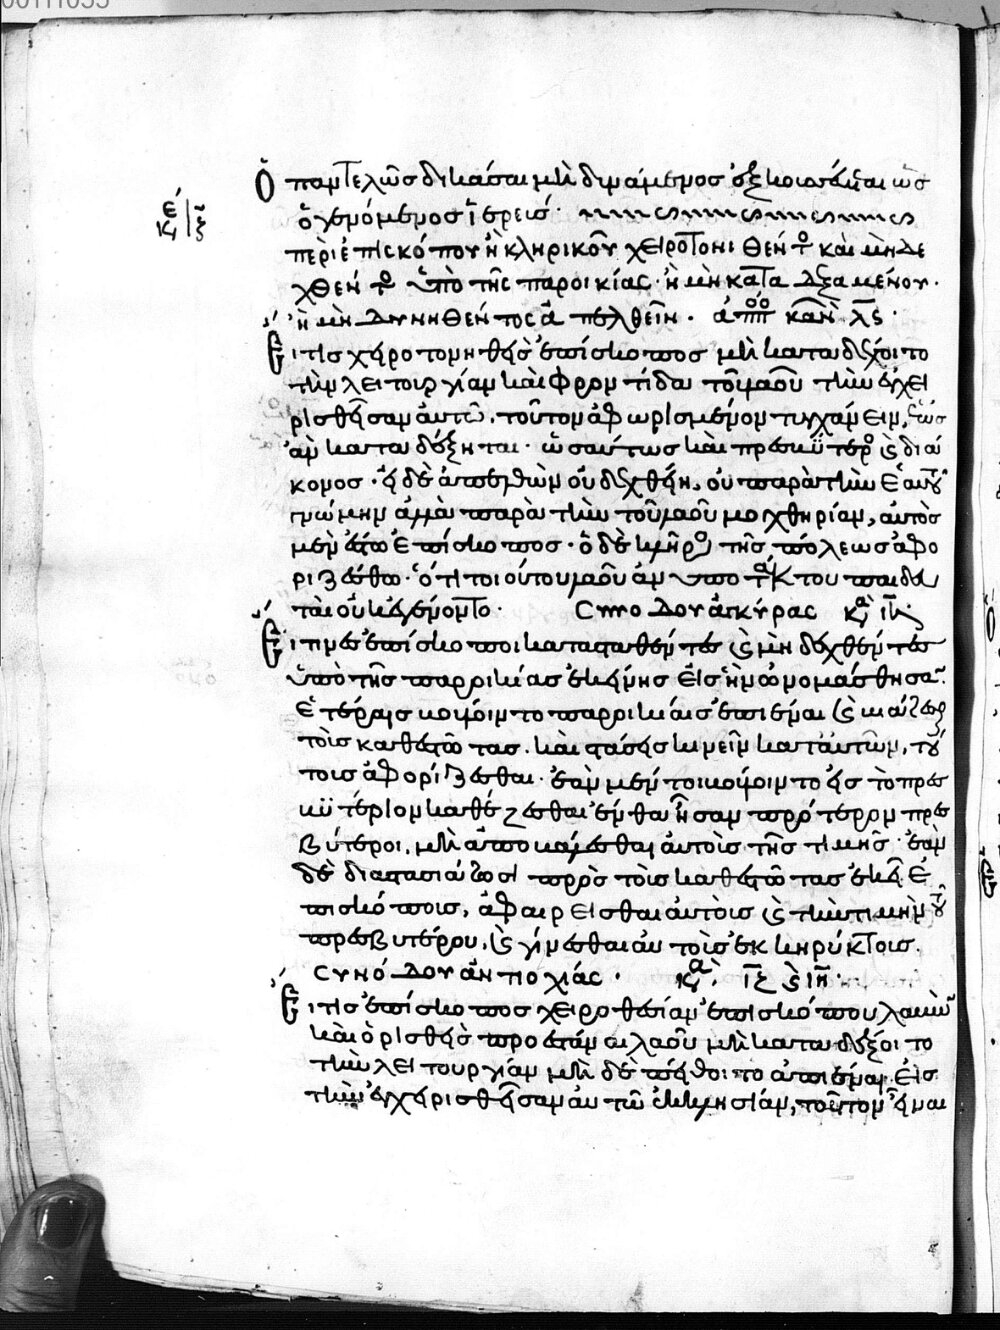 00111055
Ὁ παντελῶς δικάσαι μὴ δυνάμενος ἐξ κοιαισται ὡς
ὁ γενόμενος ἱερεύς.
ε κʹ | ξ
περὶ ἐπισκόπου ἢ κληρικοῦ χειροτονηθέντο καὶ μὴ δε
χθέντο ὑπὸ τῆς παροικίας. ἢ μὴ καταδεξαμένου.
ἢ μὴ δυνηθέντος ἀπελθεῖν. ἀποο κανὼ λς.
Εἴ τις χειροτονηθεὶς ἐπίσκοπος μὴ καταδέχοιτο
τὴν λειτουργίαν καὶ φροντίδα τοῦ λαοῦ τὴν ἐγχει
ρισθεῖσαν αὐτῶ, τοῦτον ἀφωρισμένον τυγχάνειν, ἕως
ἂν καταδέξηται. ὡσαύτως καὶ πρεσβύτερο ς διά
κονος. εἰ δὲ ἀπελθὼν οὐ δεχθείη, οὐ παρὰ τὴν ἑαυτοῦ
γνώμην ἀλλὰ παρὰ τὴν τοῦ λαοῦ μοχθηρίαν, αὐτὸς
μὲν ἔστω ἐπίσκοπος. ὁ δὲ κλῆρο τῆς πόλεως ἀφο
ριζέσθω. ὅτι τοιούτου λαοῦ ἀν υπο τακτου παιδευ
ταὶ οὐκ ἐγένοντο. Συνόδου ἀγκύρας κα ιη.
Εἴ τινες ἐπίσκοποι κατασταθέντες ς μὴ δεχθέντες
ὑπὸ τῆς παροικίας ἐκείνης εἰς ἣν ὠνομάσθησαν
ἑτέραις κούλοιντο παροικίαις ἐπιέναι ς βιάζεσ
τοὺς καθεστῶτας. καὶ στάσεις κινεῖν κατ αὐτῶν, τού
τους ἀφορίζεσθαι. ἐὰν μέν τοι βούλοιντο εἰς τὸ πρεσ
βυτέριον καθέζεσθαι ἔνθα ἦσαν πρότερον πρεσ
βύτεροι, μὴ ἀποβάλλεσθαι αὐτοὺς τῆς τιμῆς. ἐὰν
δὲ διαστασιάζωσι πρὸς τοὺς καθεστῶτας ἐκεῖ ἐ
πισκόποις, ἀφαιρεῖσθαι αὐτοὺς ς τὴν τιμὴν τοῦ
πρεσβυτέρου, ς γίνεσθαι αὐτοὺς ἐκκηρύκτους.
Συνόδου ἀντιοχίας. κα ιζ ς ιη.
Εἴ τις ἐπίσκοπος χειροθεσίαν ἐπισκόπου λαβὼν
καὶ ὁρισθεὶς προεστάναι λαοῦ μὴ καταδέξοιτο
τὴν λειτουργίαν μὴ δὲ πείθοιτο ἀπιέναι εἰς
τὴν ἐγχειρισθεῖσαν αὐτῶ ἐκκλησίαν, τοῦτον εἶναι